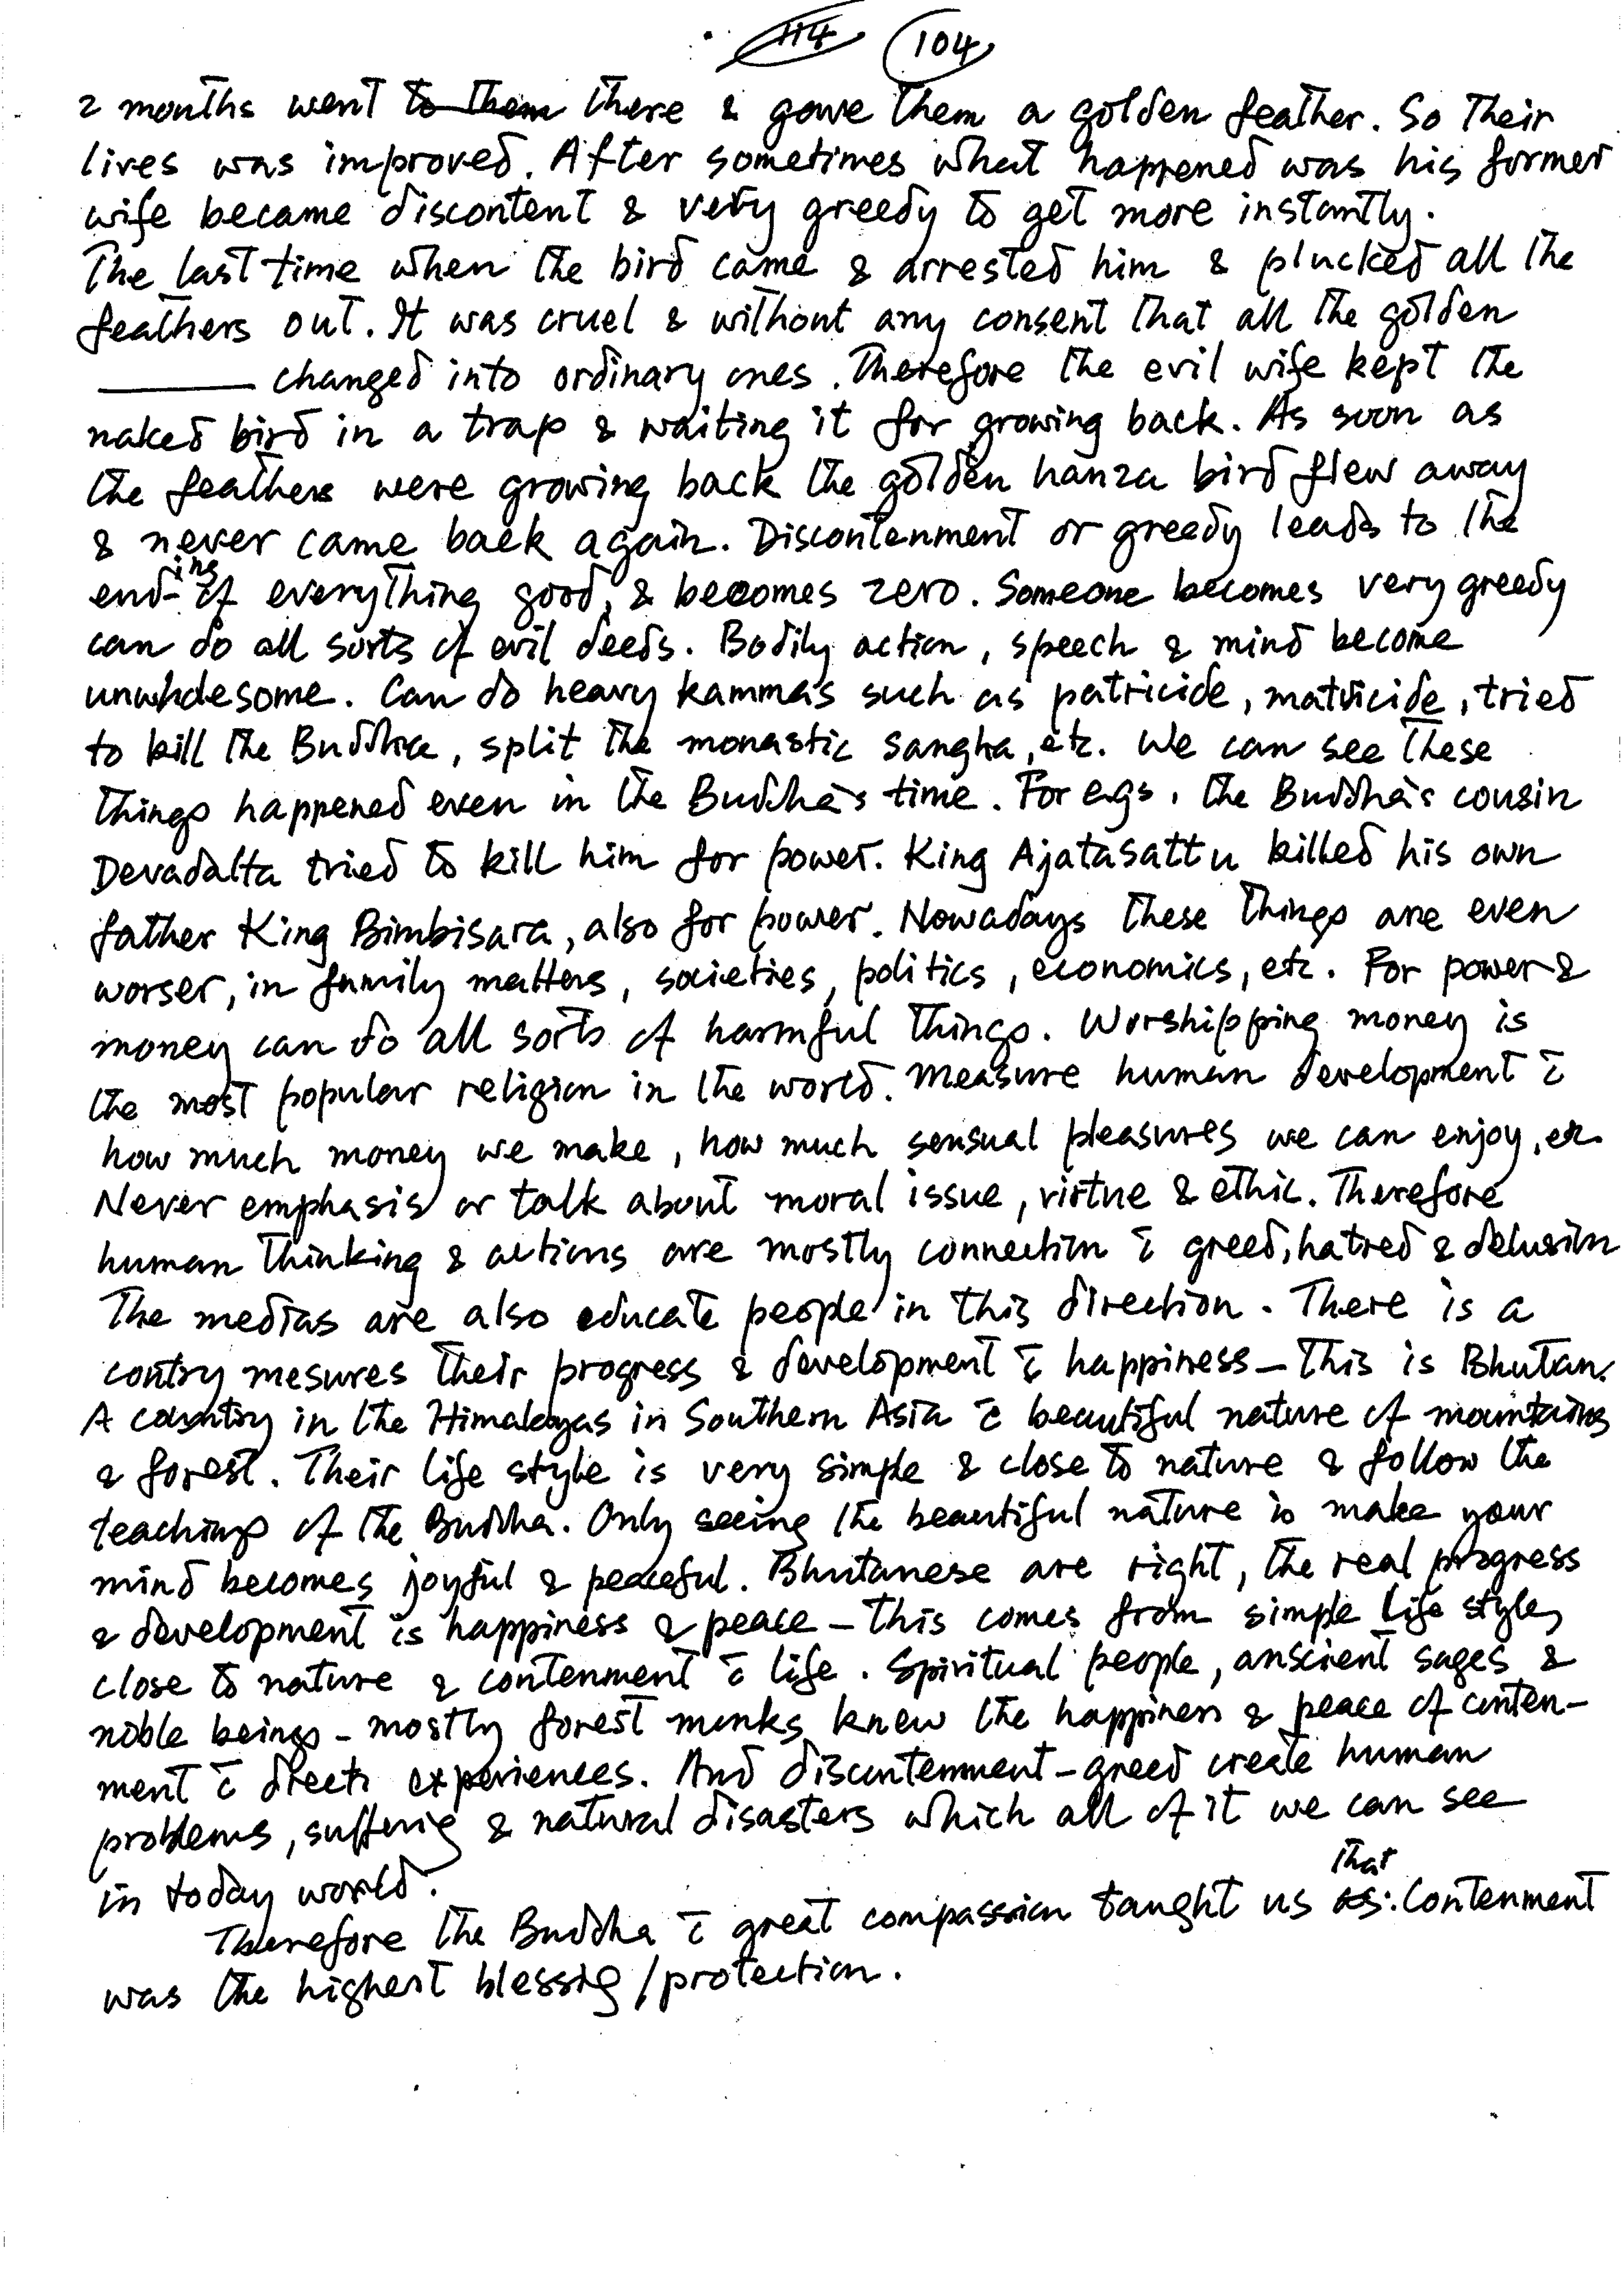 114 104
2 months went to them there & gave them a golden feather. So their
lives was improved. After sometimes what happened was his former
wife became discontent & very greedy to get more instantly.
The last time when the bird came & arrested him & plucked all the
feathers out. It was cruel & without any consent that all the golden
______ changed into ordinary ones. Therefore the evil wife kept the
naked bird in a trap & waiting it for growing back. As soon as
the feathers were growing back the golden hanza bird flew away
& never came back again. Discontenment or greedy leads to the
end-ing of everything good, & becomes zero. Someone becomes very greedy
can do all sorts of evil deeds. Bodily action, speech & mind become
unwholesome. Can do heavy kammas such as patricide, matricide, tried
to kill the Buddha, split the monastic sangha, etc. We can see these
things happened even in the Buddha's time. For egs, the Buddha's cousin
Devadatta tried to kill him for power. King Ajatasattu killed his own
father King Bimbisara, also for power. Nowadays these things are even
worser, in family matters, societies, politics, economics, etc. For power &
money can do all sorts of harmful things. Worshipping money is
the most popular religion in the world. Measure human development c̄
how much money we make, how much sensual pleasures we can enjoy, etc.
Never emphasis or talk about moral issue, virtue & ethic. Therefore
human thinking & actions are mostly connection c̄ greed, hatred & delusion
The medias are also educate people in this direction. There is a
contry mesures their progress & development c̄ happiness – this is Bhutan.
A country in the Himalayas in Southern Asia c̄ beautiful nature of mountains
& forest. Their life style is very simple & close to nature & follow the
teachings of the Buddha. Only seeing the beautiful nature is make your
mind becomes joyful & peaceful. Bhutanese are right, the real progress
& development is happiness & peace – this comes from simple life style,
close to nature & contenment c̄ life. Spiritual people, anscient sages &
noble beings – mostly forest monks knew the happiness & peace of conten-
ment c̄ direct experiences. And discontenment – greed create human
problems, suffering & natural disasters which all of it we can see
in today world.
Therefore the Buddha c̄ great compassion taught us as: that Contenment
was the highest blessing / protection.